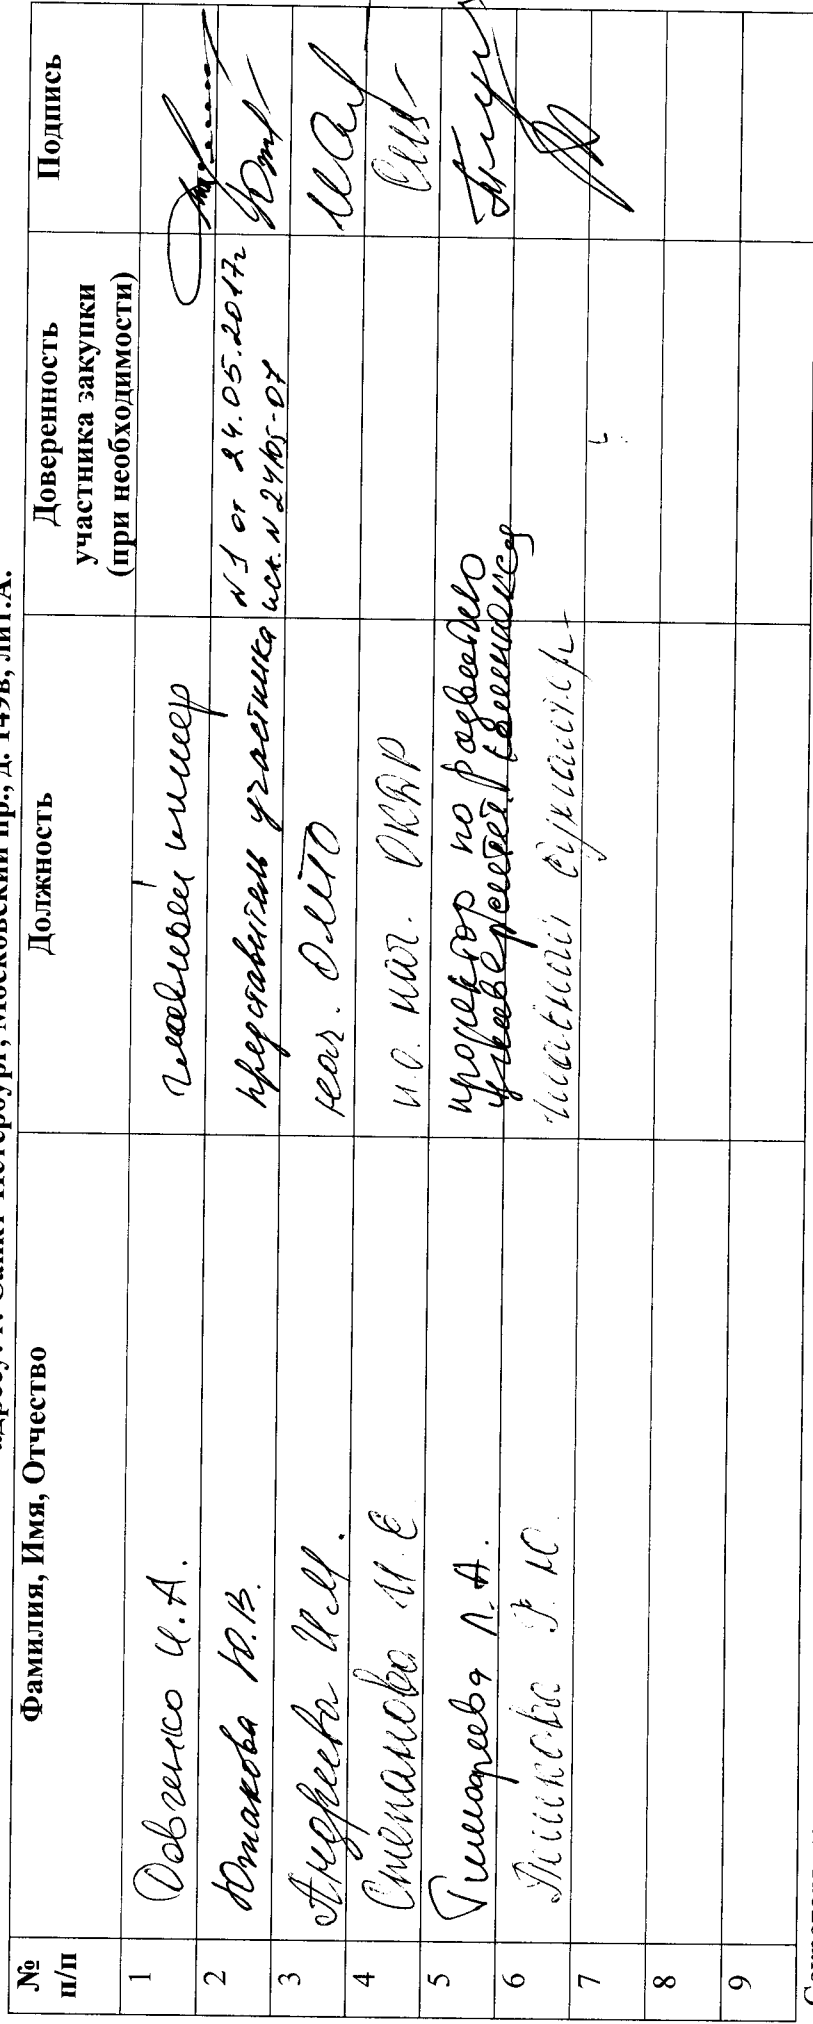 адресу: г. Санкт-Петербург, Московский пр., д. 149В, лит.А.
№ п/п
Фамилия, Имя, Отчество
Должность
Доверенность участника закупки (при необходимости)
Подпись
1 Довгенко И.А. главный инженер
2 Юшакова Ю.В. представитель участника №1 от 24.05.2017г
исх. №
3 Андреева И.М. нач. ОМТО
4 Степанова И.Е. и.о. нач.
5 Тимофеева Л.А. проректор по развитию
университетского комплекса
6 главный бухгалтер
7
8
9